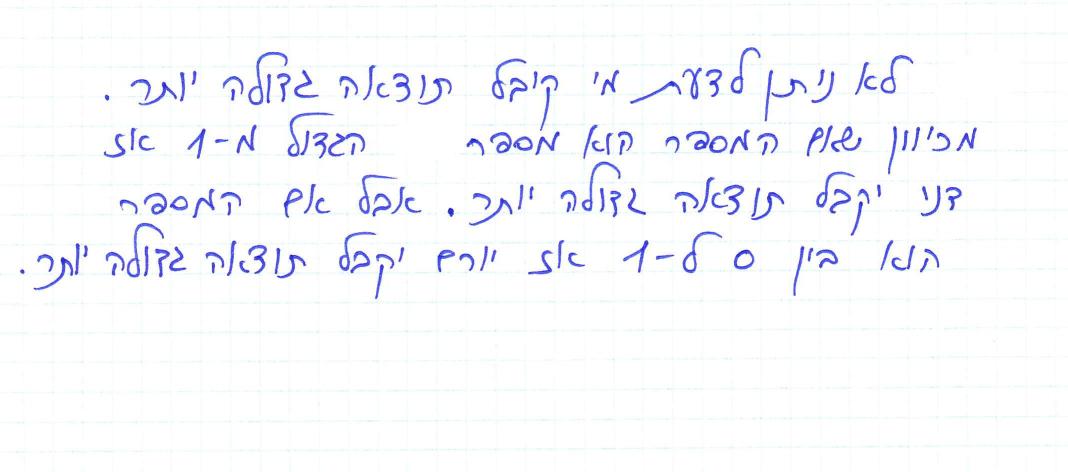 לא ניתן לדעת מי קיבל תוצאה גדולה יותר.
מכיוון שאם המספר הוא מספר הגדול מ-1 אז
דני יקבל תוצאה גדולה יותר. אבל אם המספר
הוא בין 0 ל-1 אז יורם יקבל תוצאה גדולה יותר.